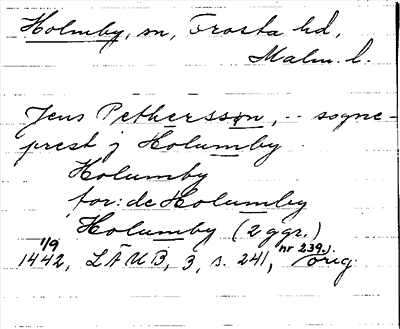 Holmby, sn, Frosta hd,
Malm. l.
Jens Pethersson, -- sogne-
prest j Holumby
Holumby
for: de Holumby
Holumby (2 ggr.)
1/9 1442, LÄUB, 3, s. 241, nr 239.), orig.